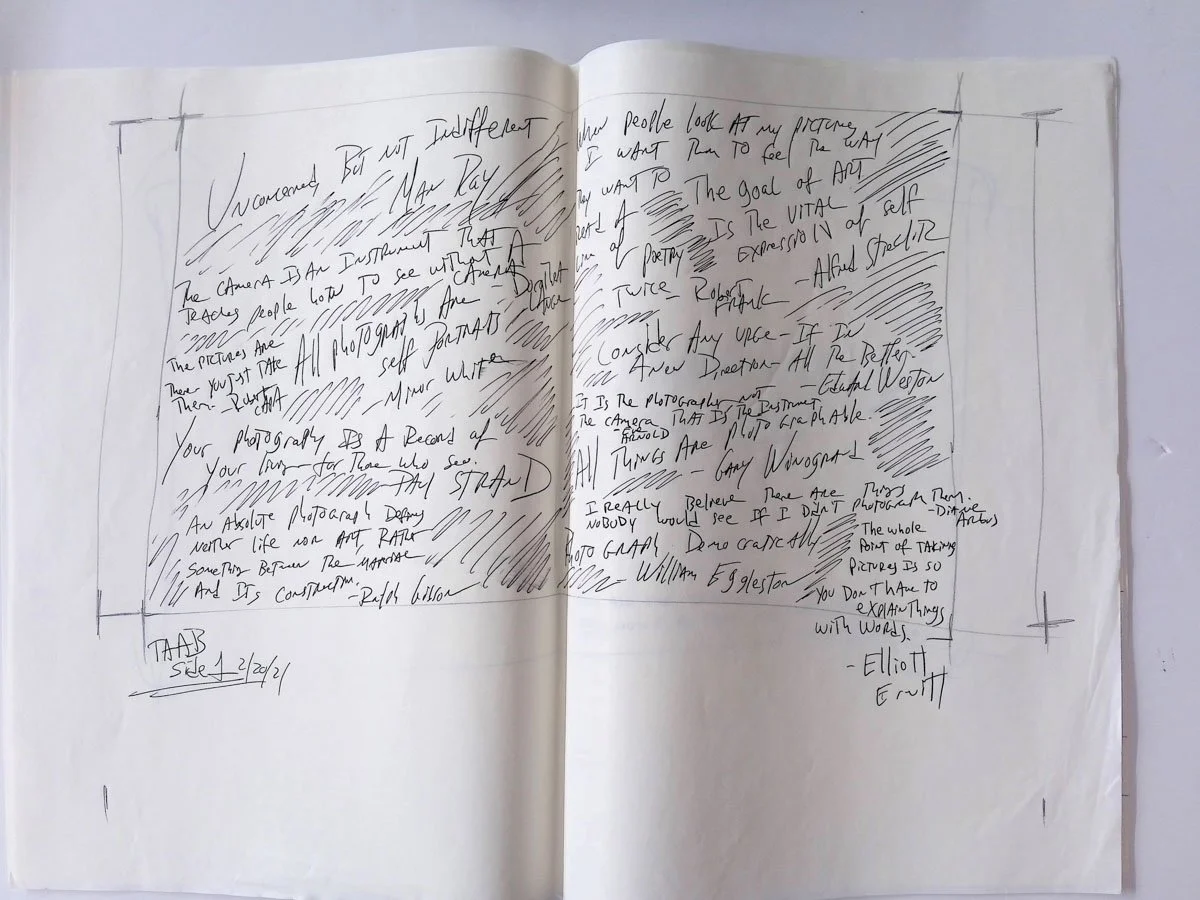 Unconcerned But not Indifferent
Man Ray
The CAMERA Is An Instrument THAT
Teaches people how to see without A
CAMERA - Dorothea
Lange
The pictures Are
There you just take
Them. - Robert
CAPA
All photographs Are
self portraits
- Minor White
Your photography Is A Record of
Your living - for those who see.
- PAUL STRAND
An Absolute photograph Defines
neither life nor ART, RATHER
Something Between the MATERIAL
And Its construction.
- Ralph Gibson
TAAB
side 1 2/20/21
When people look AT my pictures
I want them to feel the WAY
they want to
read A
line of poetry
Twice - Robert
FRANK
The goal of ART
Is The VITAL
EXPRESSION of self
- Alfred Stieglitz
Consider Any urge - If In
A new Direction - All The Better.
- Edward Weston
It Is the photographer not
The camera THAT Is The Instrument
- ARNOLD
All Things Are photographable.
- Gary Winogrand
I REALLY Believe There ARE Things
NOBODY would see If I Didn't photograph Them.
- Diane
Arbus
Photo GRAPH Democratically
- William Eggleston
The whole
Point of TAKING
Pictures Is so
You Don't have to
explain Things
with Words.
- Elliott
Erwitt